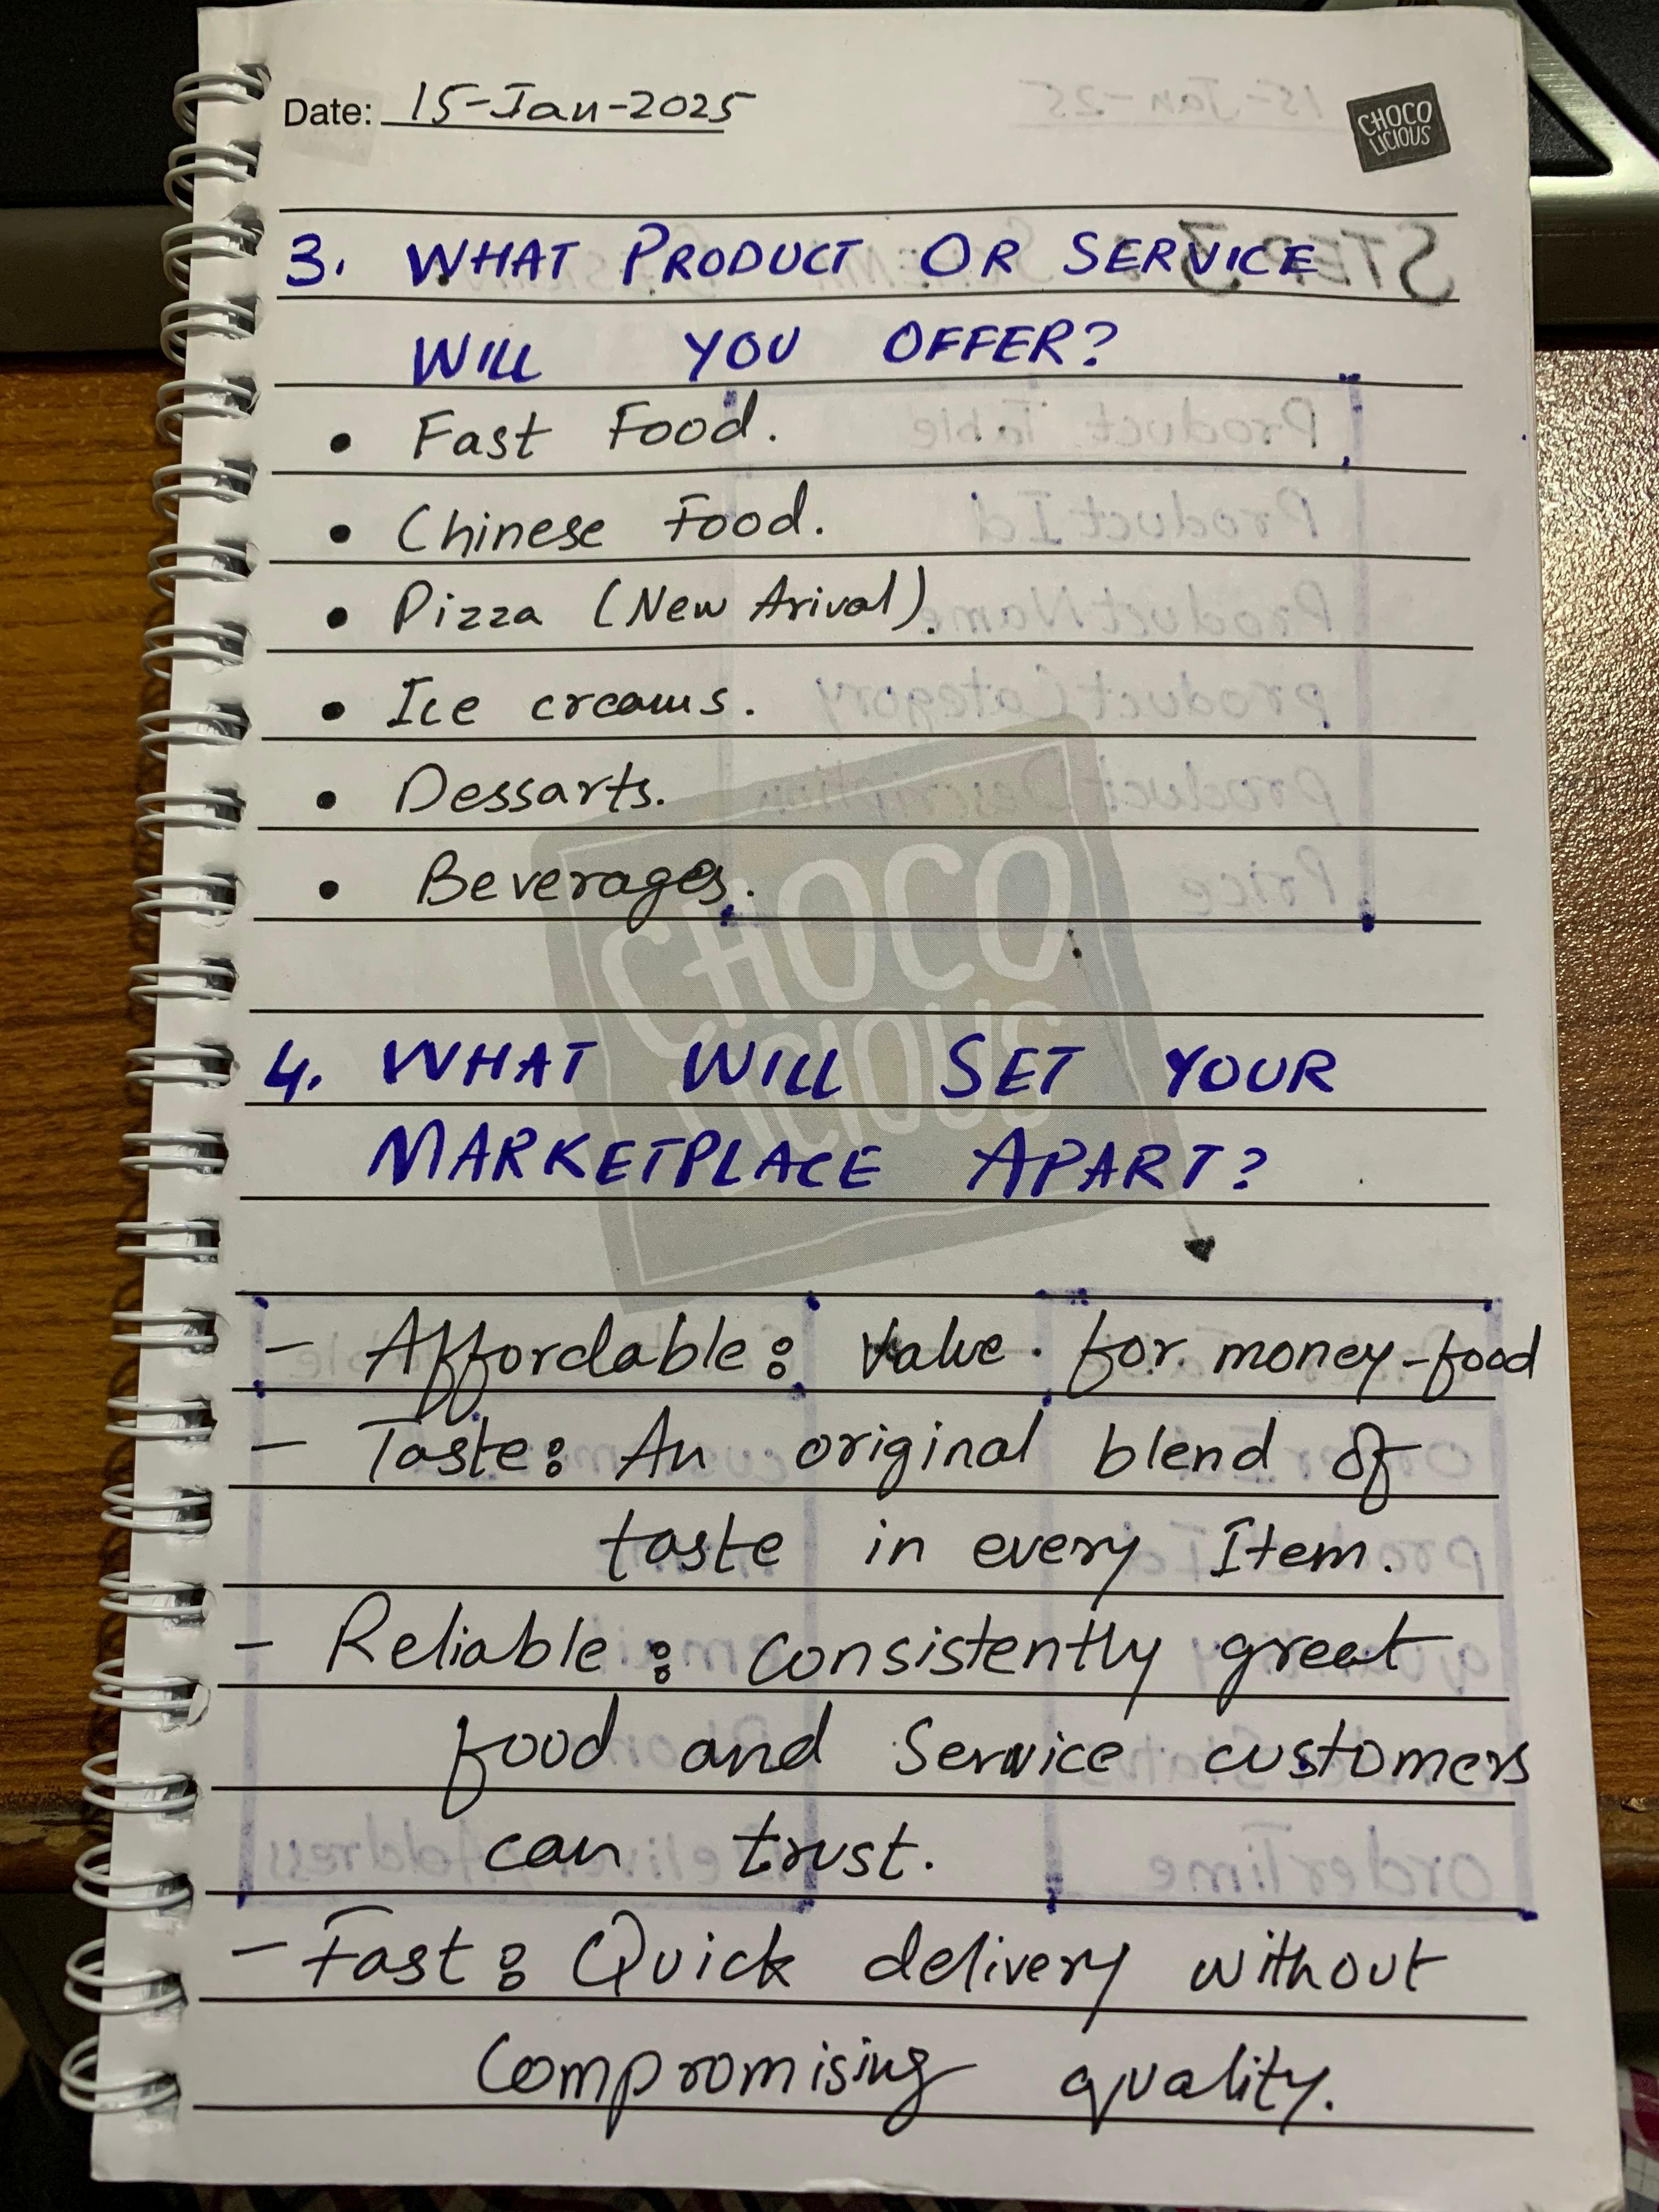 Date: 15-Jan-2025
CHOCO
LICIOUS
3. WHAT PRODUCT OR SERVICE
WILL YOU OFFER?
• Fast Food.
• Chinese Food.
• Pizza (New Arival).
• Ice creams.
• Dessarts.
• Beverages.
CHOCO
LICIOUS
4. WHAT WILL SET YOUR
MARKETPLACE APART?
- Affordable: Value for money-food
- Taste: An original blend of
taste in every Item.
- Reliable: consistently great
food and Service customers
can trust.
- Fast: Quick delivery without
compromising quality.